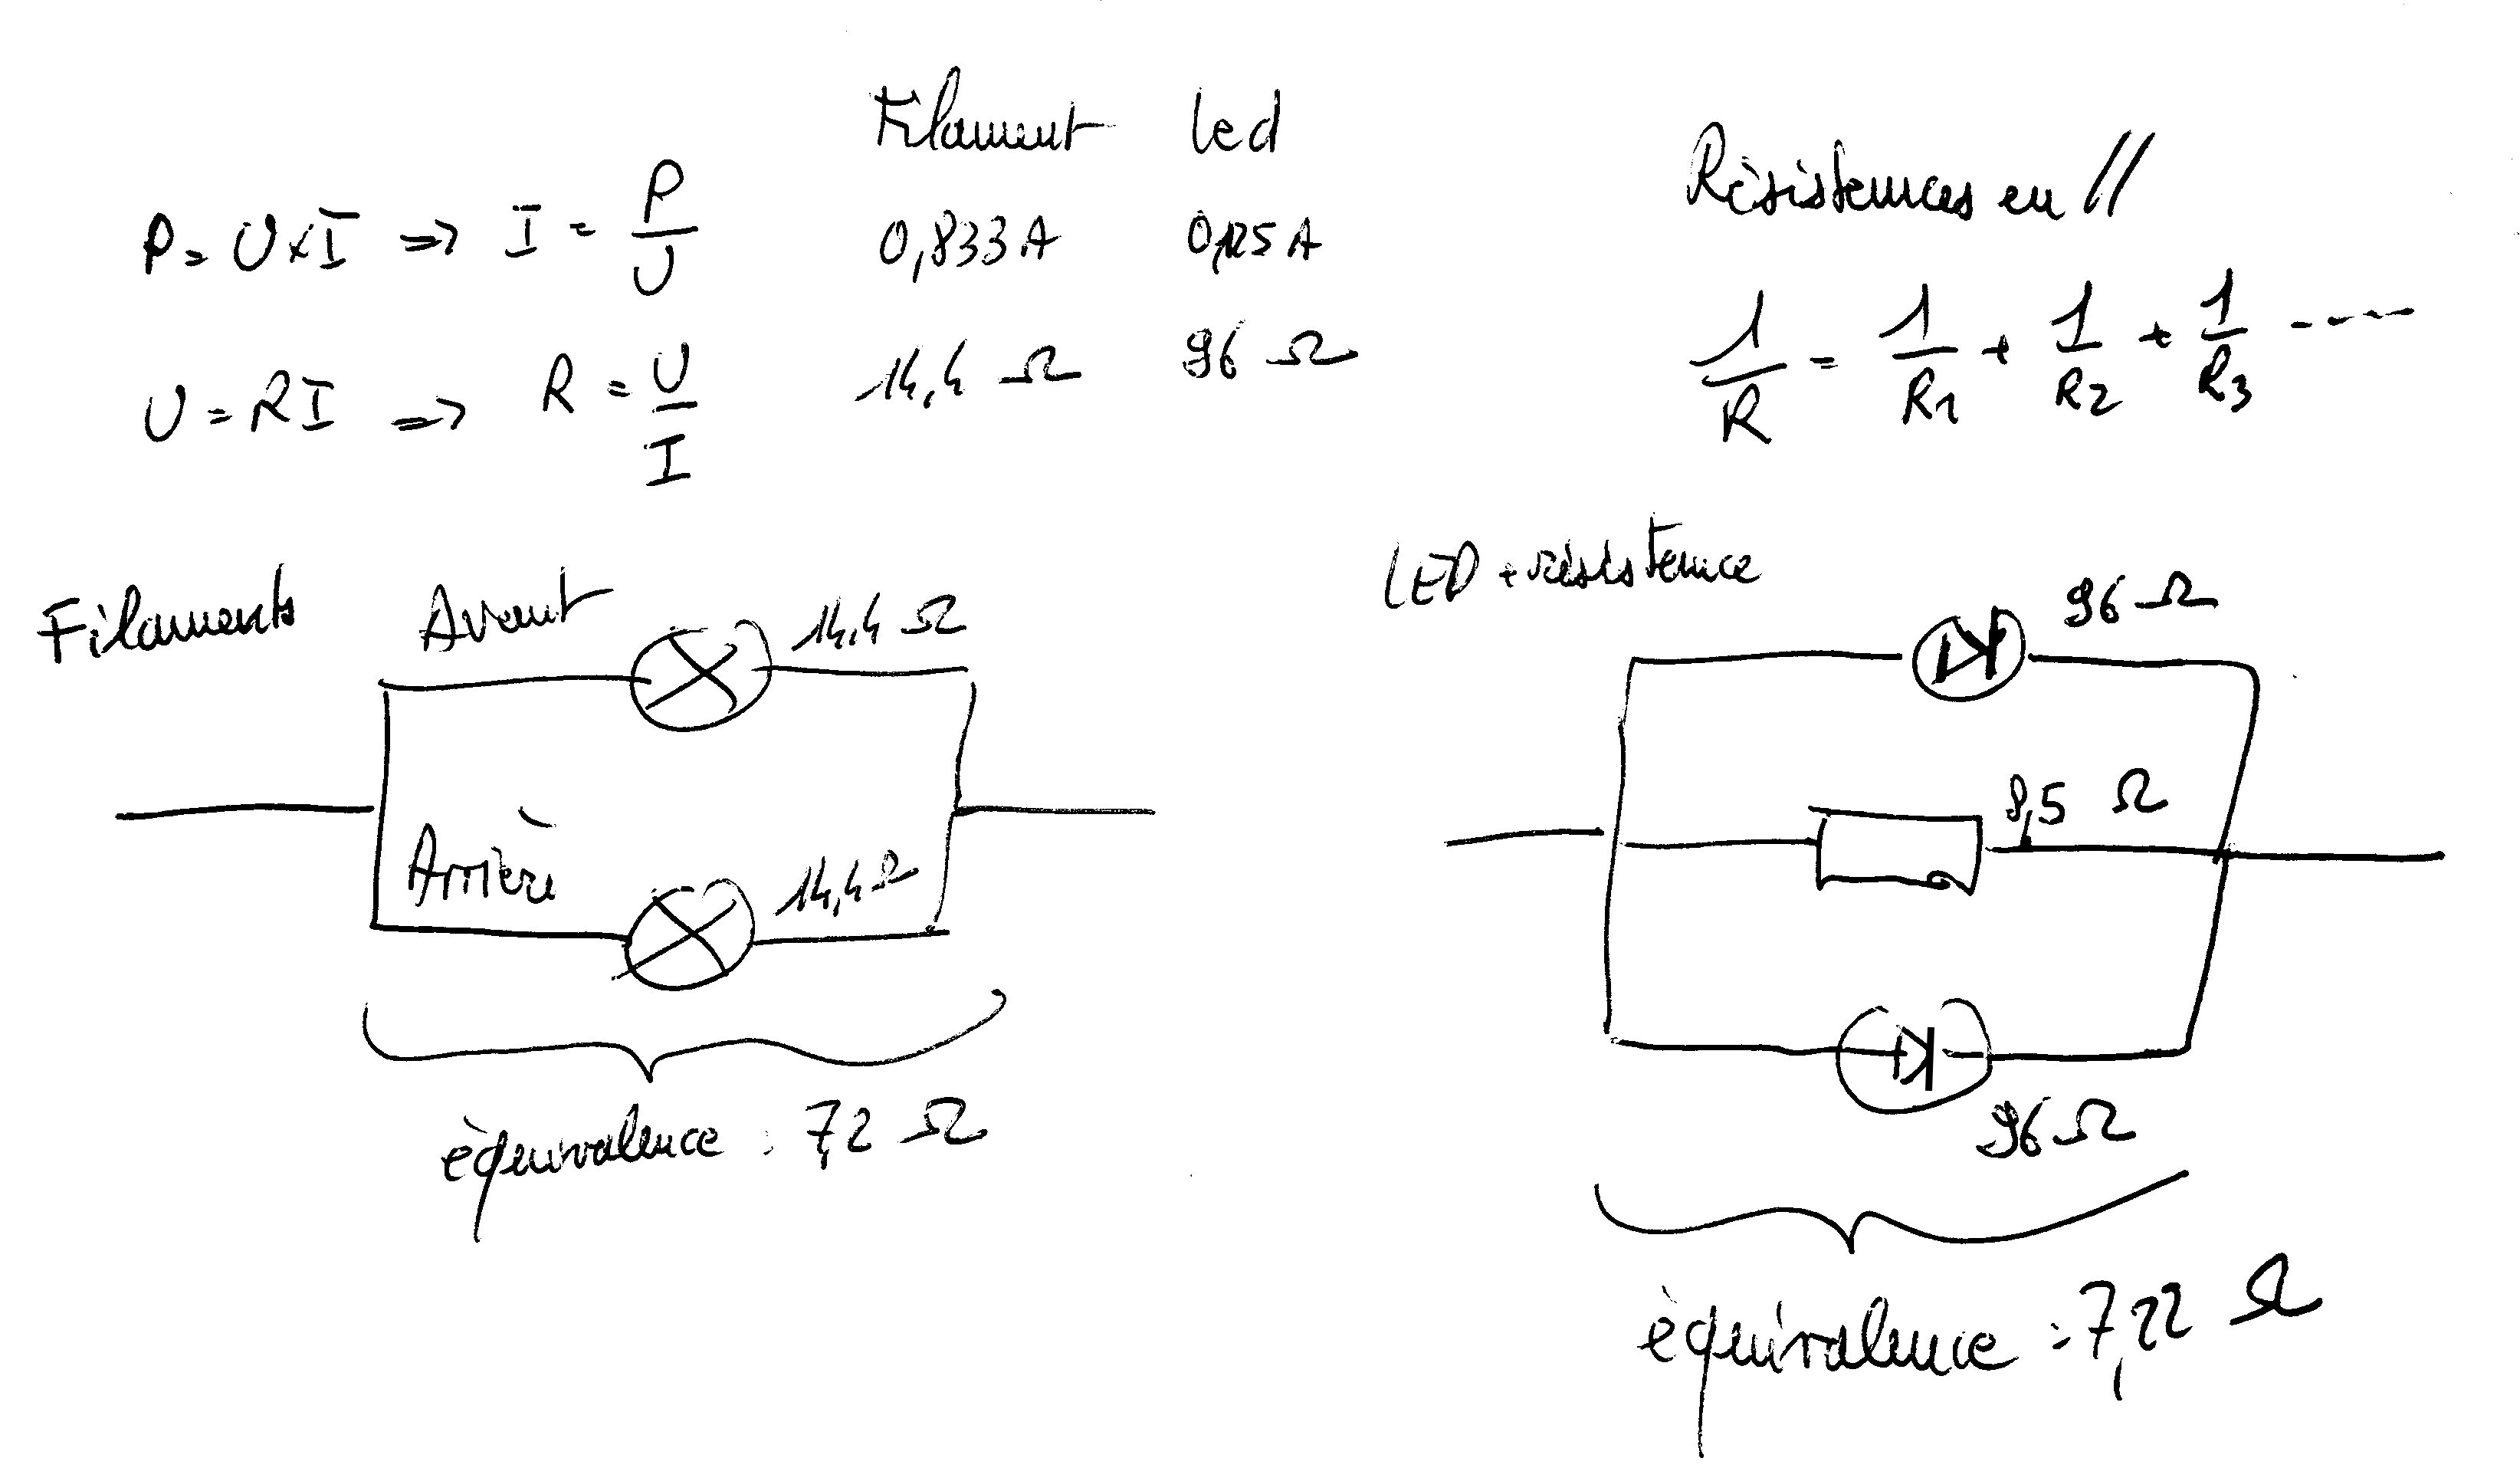 Filament led
P = U x I => I = P/U 0,833 A 0,125 A
U = RI => R = U/I 14,4 Ω 96 Ω
Résistences en //
1/R = 1/R1 + 1/R2 + 1/R3 ----
Filaments Avant 14,4 Ω
Arrière 14,4 Ω
équivalence : 7,2 Ω
LED + résistence
96 Ω
8,5 Ω
96 Ω
équivalence : 7,22 Ω